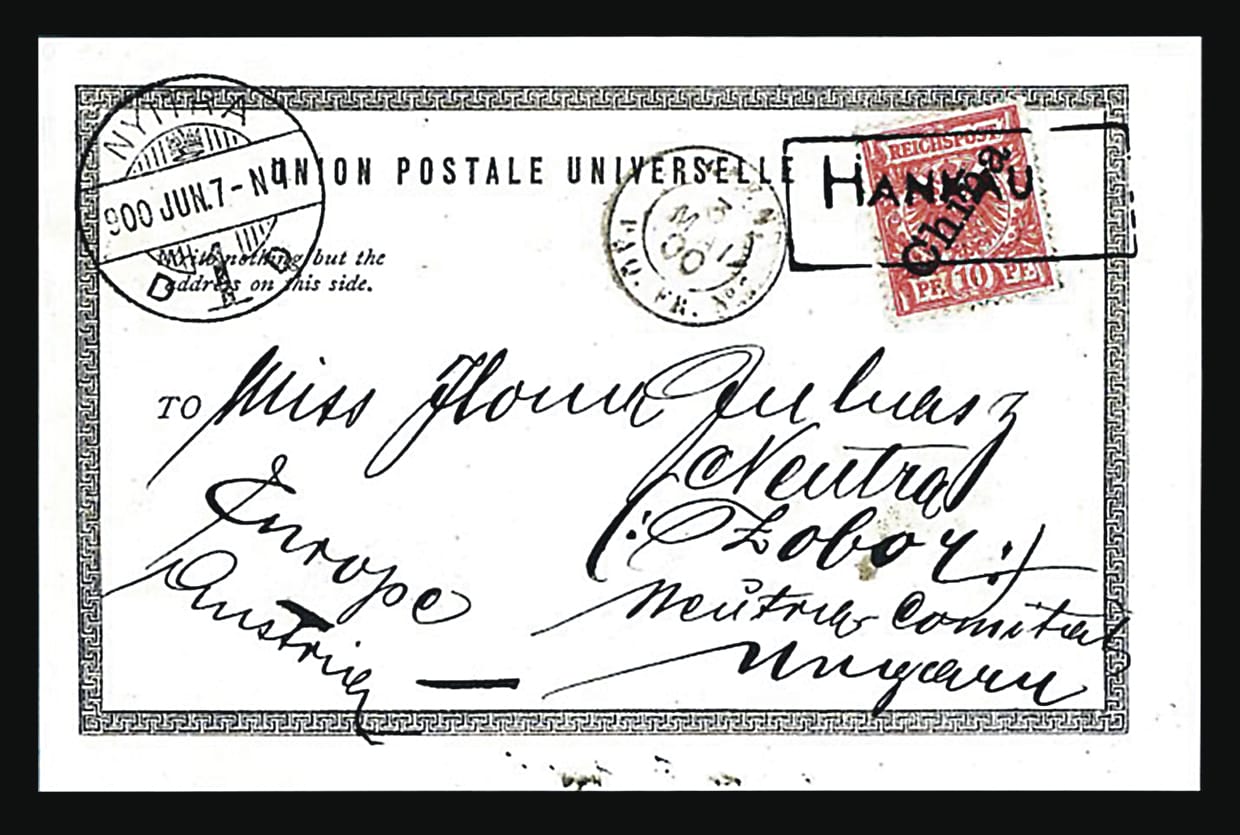 NYITRA
900 JUN.7-N4
D 1 D
UNION POSTALE UNIVERSELLE
Write nothing but the
address on this side.
LIGNE N
PAQ. FR. Nº
5
MAI
00
HANKAU
REICHSPOST
China
10
PF 10 PF
TO Miss Ilona Juhasz
Neutra
(: Zobor :)
Neutra Comitat
Ungarn
Europe
Austria